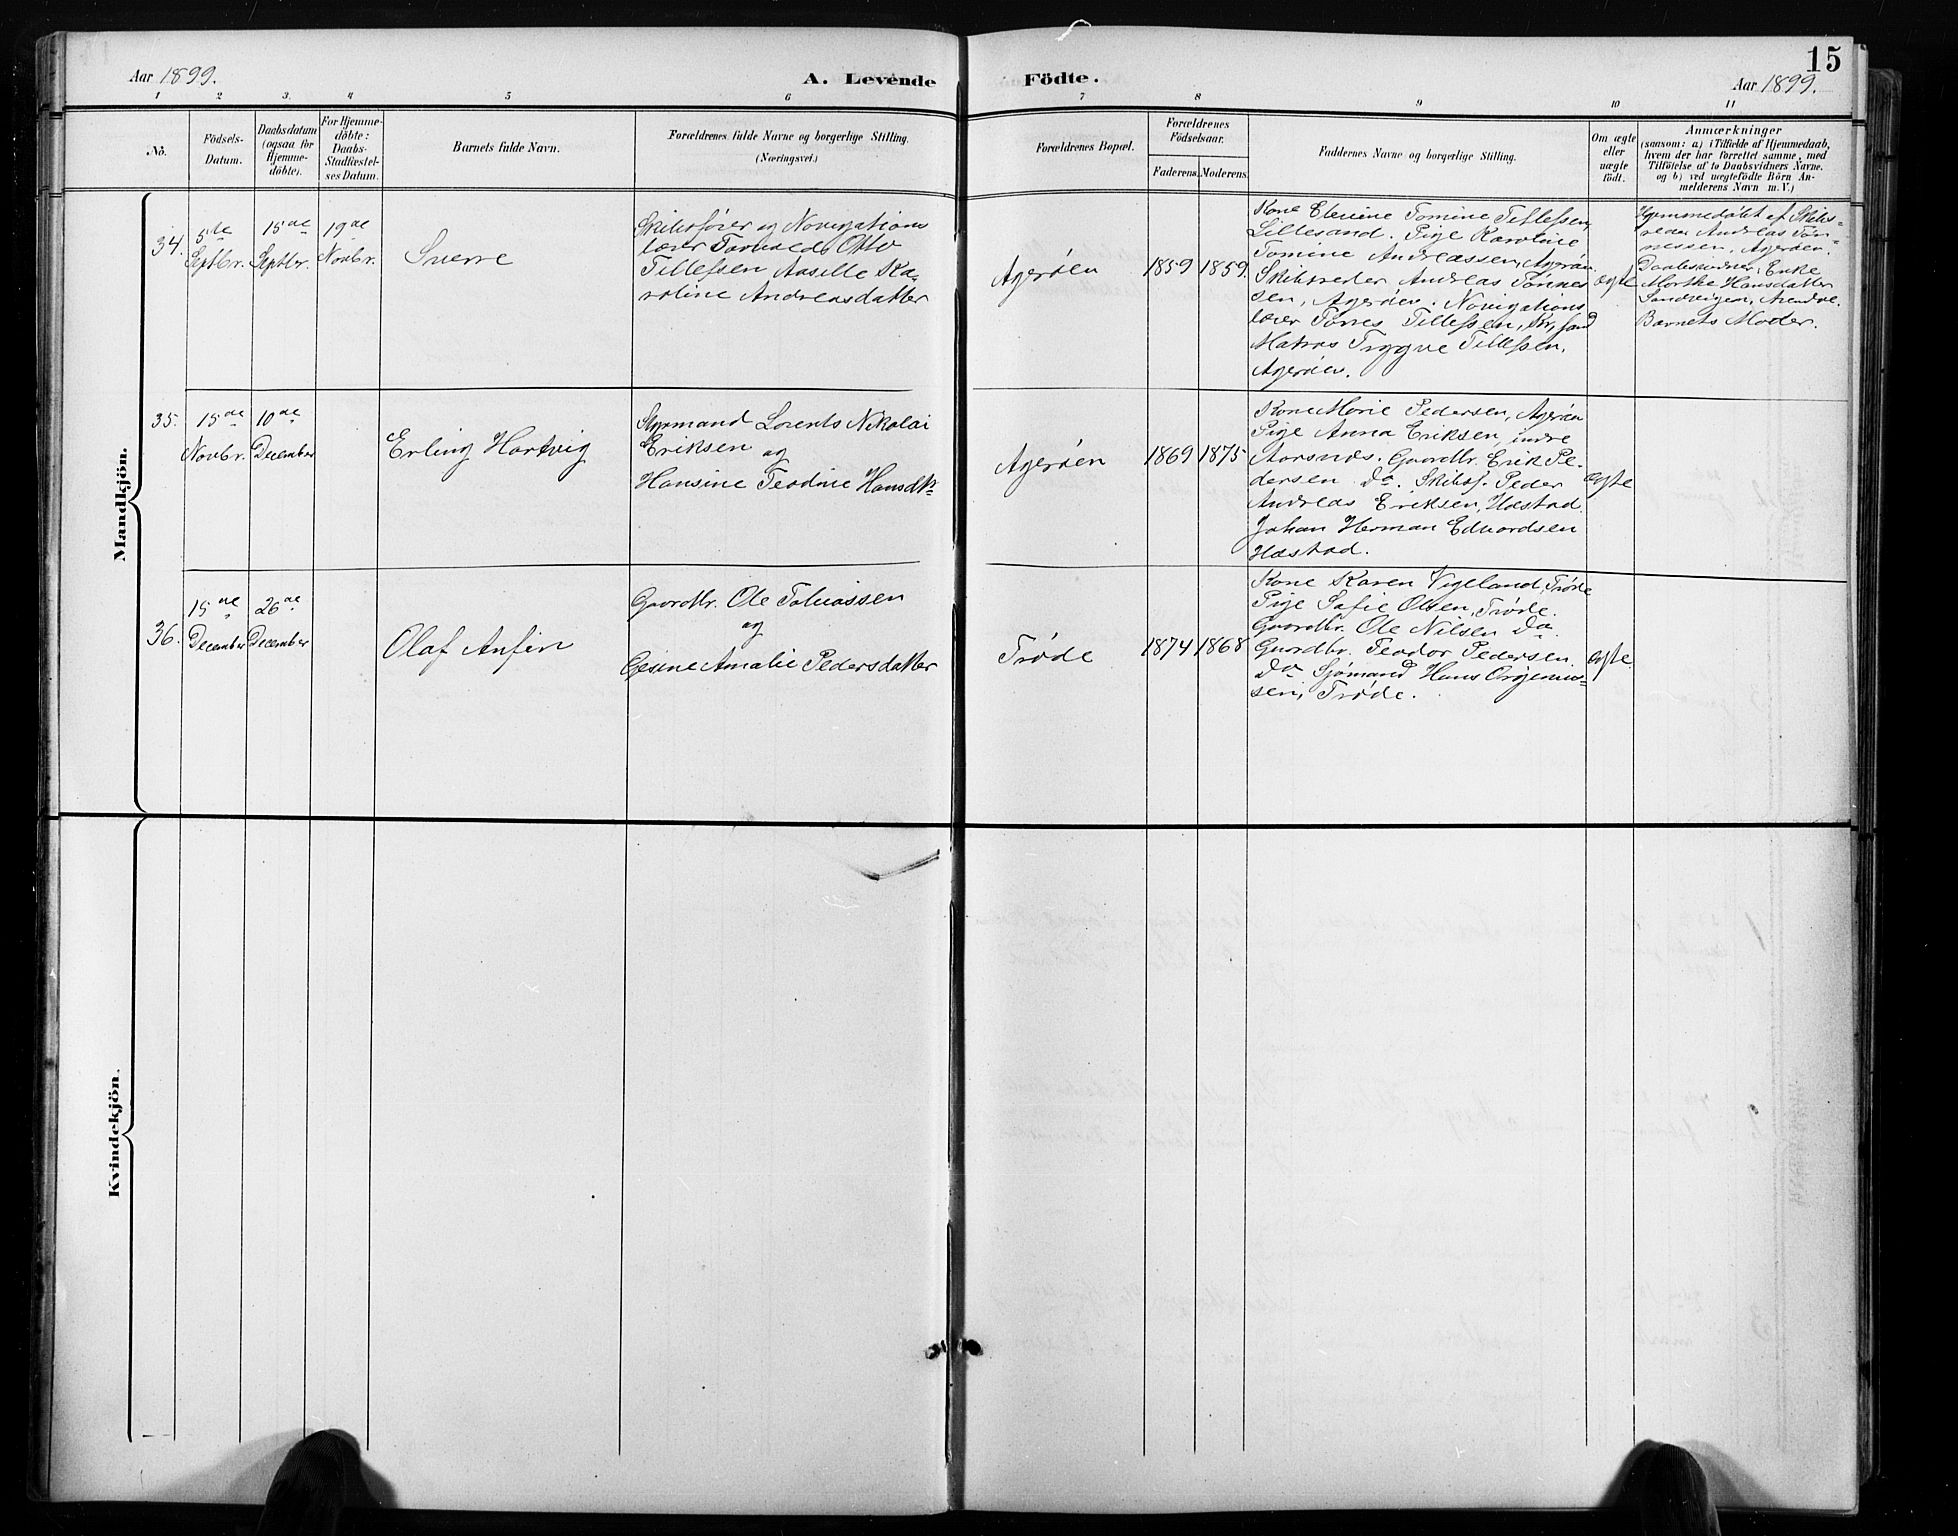 15
Aar 1899.
A. Levende Födte.
Aar 1899.
1 2 3. 4 5 6 7 8 9 10 11
No.
Födsels-
Datum.
Daabsdatum
(ogsaa for
Hjemme-
döbte).
For Hjemme-
döbte:
Daabs-
Stadfæstel-
ses Datum.
Barnets fulde Navn.
Forældrenes fulde Navne og borgerlige Stilling.
(Næringsvei.)
Forældrenes Bopæl.
Forældrenes
Födselsaar.
Faderens. Moderens.
Faddernes Navne og borgerlige Stilling.
Om ægte
eller
uægte
födt.
Anmærkninger
(saasom: a) i Tilfælde af Hjemmedaab,
hvem der har forrettet samme, med
Tilföielse af to Daabsvidners Navne,
og b) ved uægtefödte Börn An-
melderens Navn m.V.)
Mandkjön.
34.
5te
Septbr.
15de
Septbr.
19de
Novbr.
Sverre
Skibsfører og Navigations
lærer Torvald Otto
Tellefsen Aasille Ka-
roline Andreasdatter
Agerøen
1859
1859.
Kone Elevine Tomine Tellefsen,
Lillesand. Pige Karoline
Tomine Andreassen, Agerøen
Skibsreder Andreas Tønnes
sen, Agerøen. Navigations
lærer Tønnes Tellefsen, Kr,sand
Matros Trygve Tellefsen,
Agerøen.
ægte
Hjemmedøbt af Skibs-
reder Andreas Tøn-
nessen, Agerøen.
Daabsvidner: Enke
Marthe Hansdatter
Sandvigen, Arendal.
Barnets Moder.
35.
15de
Novbr.
10de
December
Erling Hartvig
Styrmand Lorents Nikolai
Eriksen
og
Hansine Teodine Hansdtr
Agerøen
1869
1875
Kone Marie Pedersen, Agerøen
Pige Anna Eriksen, indre
Aarsnes. Gaardbr. Erik Pe-
dersen Do. Skibsf. Peder
Andreas Eriksen, Hæstad.
Johan Herman Eduardsen
Hæstad.
ægte
36.
15de
December
26de
December
Olaf Anfin
Gaardbr. Ole Tobiassen
og
Gesine Amalie Pedersdatter
Trøde
1874
1868
Kone Karen Vigeland, Trøde
Pige Sofie Olsen, Trøde.
Gaardbr. Ole Nilsen Do
Gaardbr. Teodor Pedersen.
Do Sjømand Hans
sen, Trøde.
ægte.
Kvindekjön.